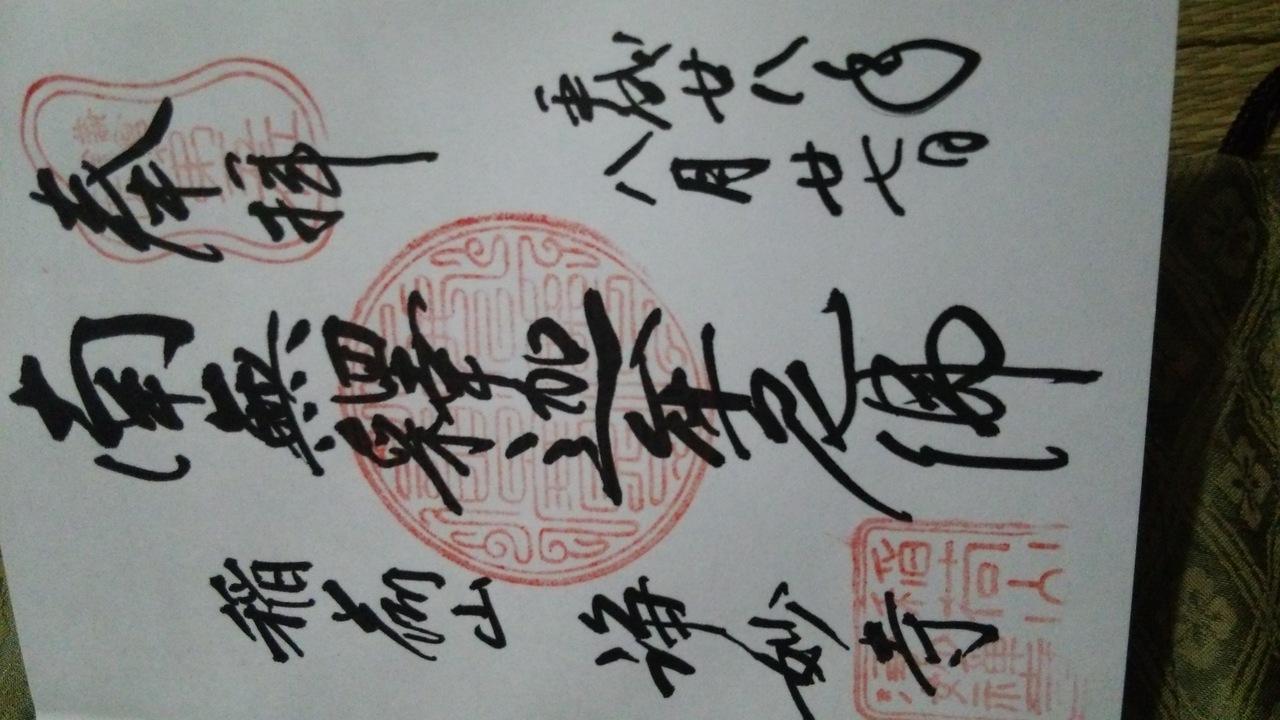 奉拝
平成廿八年
八月廿七日
南無釋迦牟尼佛
稲荷山 浄妙寺